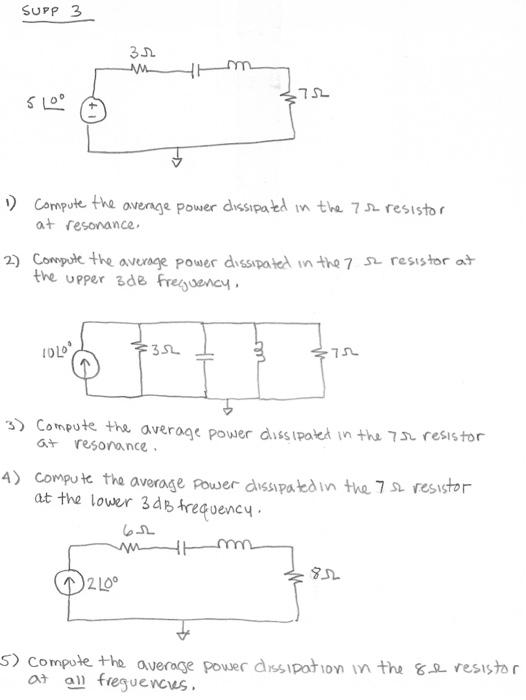 SUPP 3
3Ω
5∠0°
7Ω
+
1) Compute the average power dissipated in the 7Ω resistor
at resonance.
2) Compute the average power dissipated in the 7 Ω resistor at
the upper 3dB frequency.
10∠0°
3Ω
7Ω
3) Compute the average power dissipated in the 7Ω resistor
at resonance.
4) Compute the average power dissipated in the 7Ω resistor
at the lower 3dB frequency.
6Ω
2∠0°
8Ω
5) Compute the average power dissipation in the 8Ω resistor
at all frequencies.